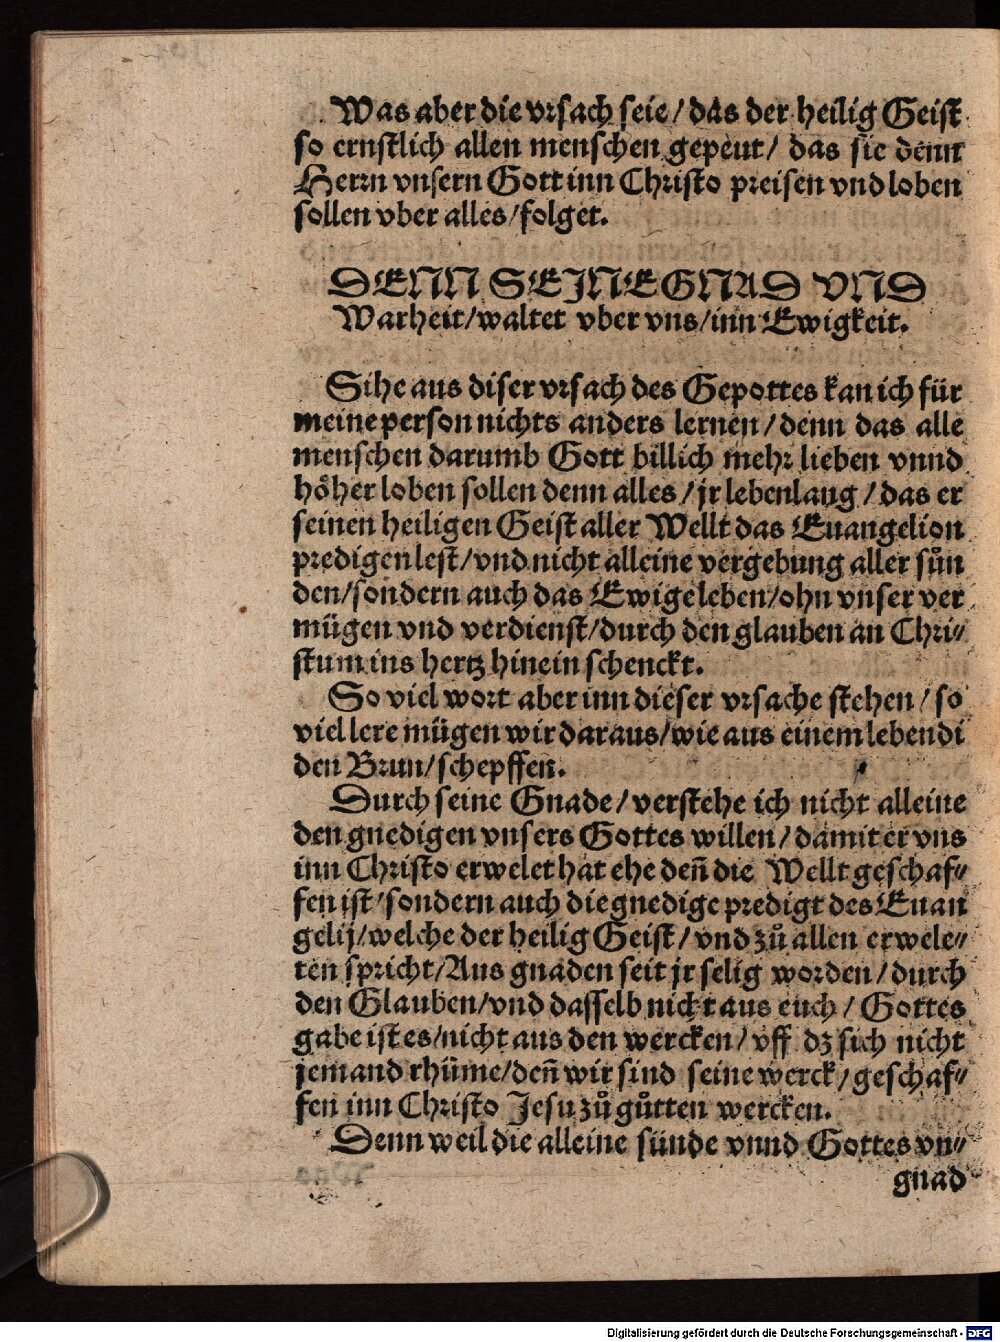 Was aber die vrsach seie / das der heilig Geist
so ernstlich allen menschen gepeut / das sie denn
Herrn vnsern Gott inn Christo preisen vnd loben
sollen vber alles / folget.
DENN SEINE GNAD VND
Warheit / waltet vber vns / inn Ewigkeit.
Sihe aus diser vrsach des Gepottes kan ich für
meine person nichts anders lernen / denn das alle
menschen darumb Gott billich mehr lieben vnnd
höher loben sollen denn alles / jr lebenlang / das er
seinen heiligen Geist aller Wellt das Euangelion
predigen lest / vnd nicht alleine vergebung aller sůn
den / sondern auch das Ewige leben / ohn vnser ver
mügen vnd verdienst / durch den glauben an Chri⸗
stum ins hertz hinein schenckt.
So viel wort aber inn dieser vrsache stehen / so
viel lere mügen wir daraus / wie aus einem lebendi
den Brun / schepffen.
Durch seine Gnade / verstehe ich nicht alleine
den gnedigen vnsers Gottes willen / damit er vns
inn Christo erwelet hat ehe deñ die Wellt geschaf⸗
fen ist / sondern auch die gnedige predigt des Euan
gelij / welche der heilig Geist / vnd zů allen erwele⸗
ten spricht / Aus gnaden seit jr selig worden / durch
den Glauben / vnd dasselb nicht aus euch / Gottes
gabe ist es / nicht aus den wercken / vff dz sich nicht
jemand rhüme / deñ wir sind seine werck / geschaf⸗
fen inn Christo Jesu zů gůtten wercken.
Denn weil die alleine sünde vnnd Gottes vn⸗
gnad
Digitalisierung gefördert durch die Deutsche Forschungsgemeinschaft - DFG